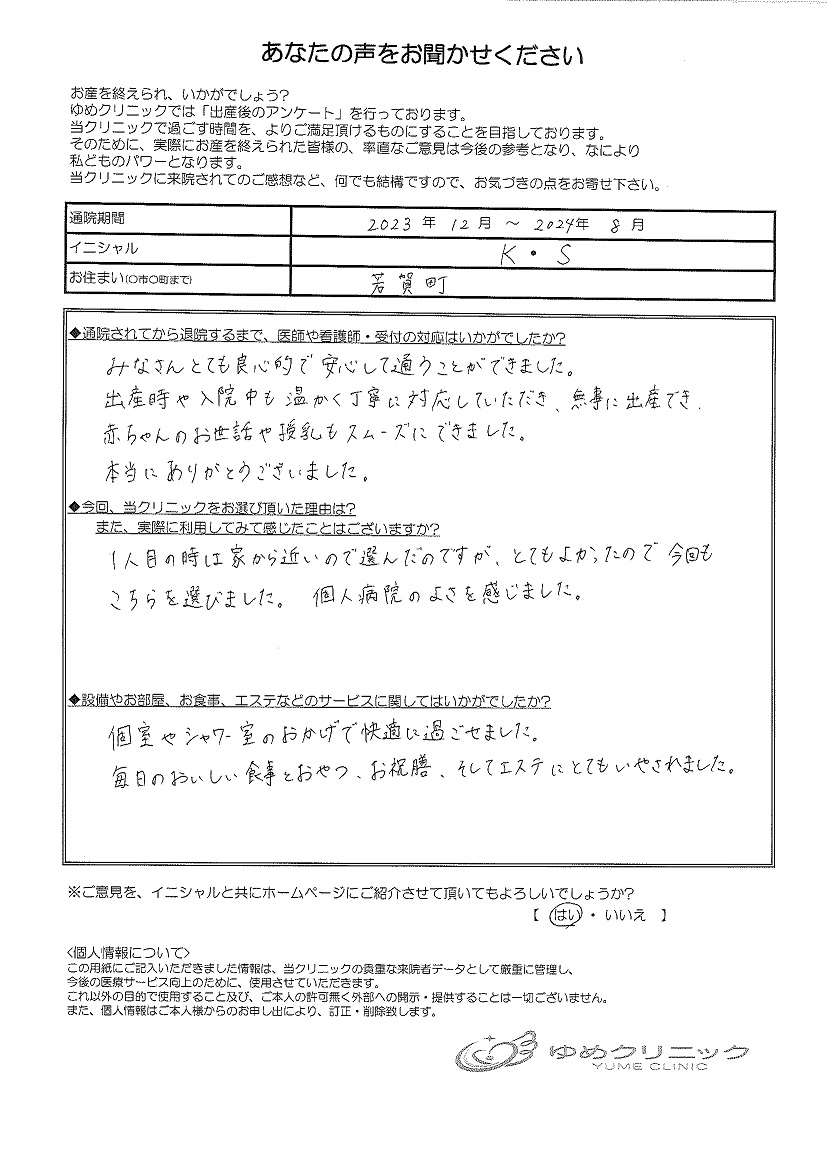 あなたの声をお聞かせください
お産を終えられ、いかがでしょう?
ゆめクリニックでは「出産後のアンケート」を行っております。
当クリニックで過ごす時間を、よりご満足頂けるものにすることを目指しております。
そのために、実際にお産を終えられた皆様の、率直なご意見は今後の参考となり、なにより
私どものパワーとなります。
当クリニックに来院されてのご感想など、何でも結構ですので、お気づきの点をお寄せ下さい。
通院期間 2023 年 12 月 ~ 2024年 8 月
イニシャル K・S
お住まい(〇市〇町まで) 芳賀町
◆通院されてから退院するまで、医師や看護師・受付の対応はいかがでしたか?
みなさんとても良心的で安心して通うことができました。
出産時や入院中も温かく丁寧に対応していただき、無事に出産でき、
赤ちゃんのお世話や授乳もスムーズにできました。
本当にありがとうございました。
◆今回、当クリニックをお選び頂いた理由は?
また、実際に利用してみて感じたことはございますか?
1人目の時は家から近いので選んだのですが、とてもよかったので今回も
こちらを選びました。 個人病院のよさを感じました。
◆設備やお部屋、お食事、エステなどのサービスに関してはいかがでしたか?
個室やシャワー室のおかげで快適に過ごせました。
毎日のおいしい食事とおやつ、お祝膳、そしてエステにとてもいやされました。
※ご意見を、イニシャルと共にホームページにご紹介させて頂いてもよろしいでしょうか?
【 はい ・ いいえ 】
<個人情報について>
この用紙にご記入いただきました情報は、当クリニックの貴重な来院者データとして厳重に管理し、
今後の医療サービス向上のために、使用させていただきます。
これ以外の目的で使用すること及び、ご本人の許可無く外部への開示・提供することは一切ございません。
また、個人情報はご本人様からのお申し出により、訂正・削除致します。
ゆめクリニック
YUME CLINIC